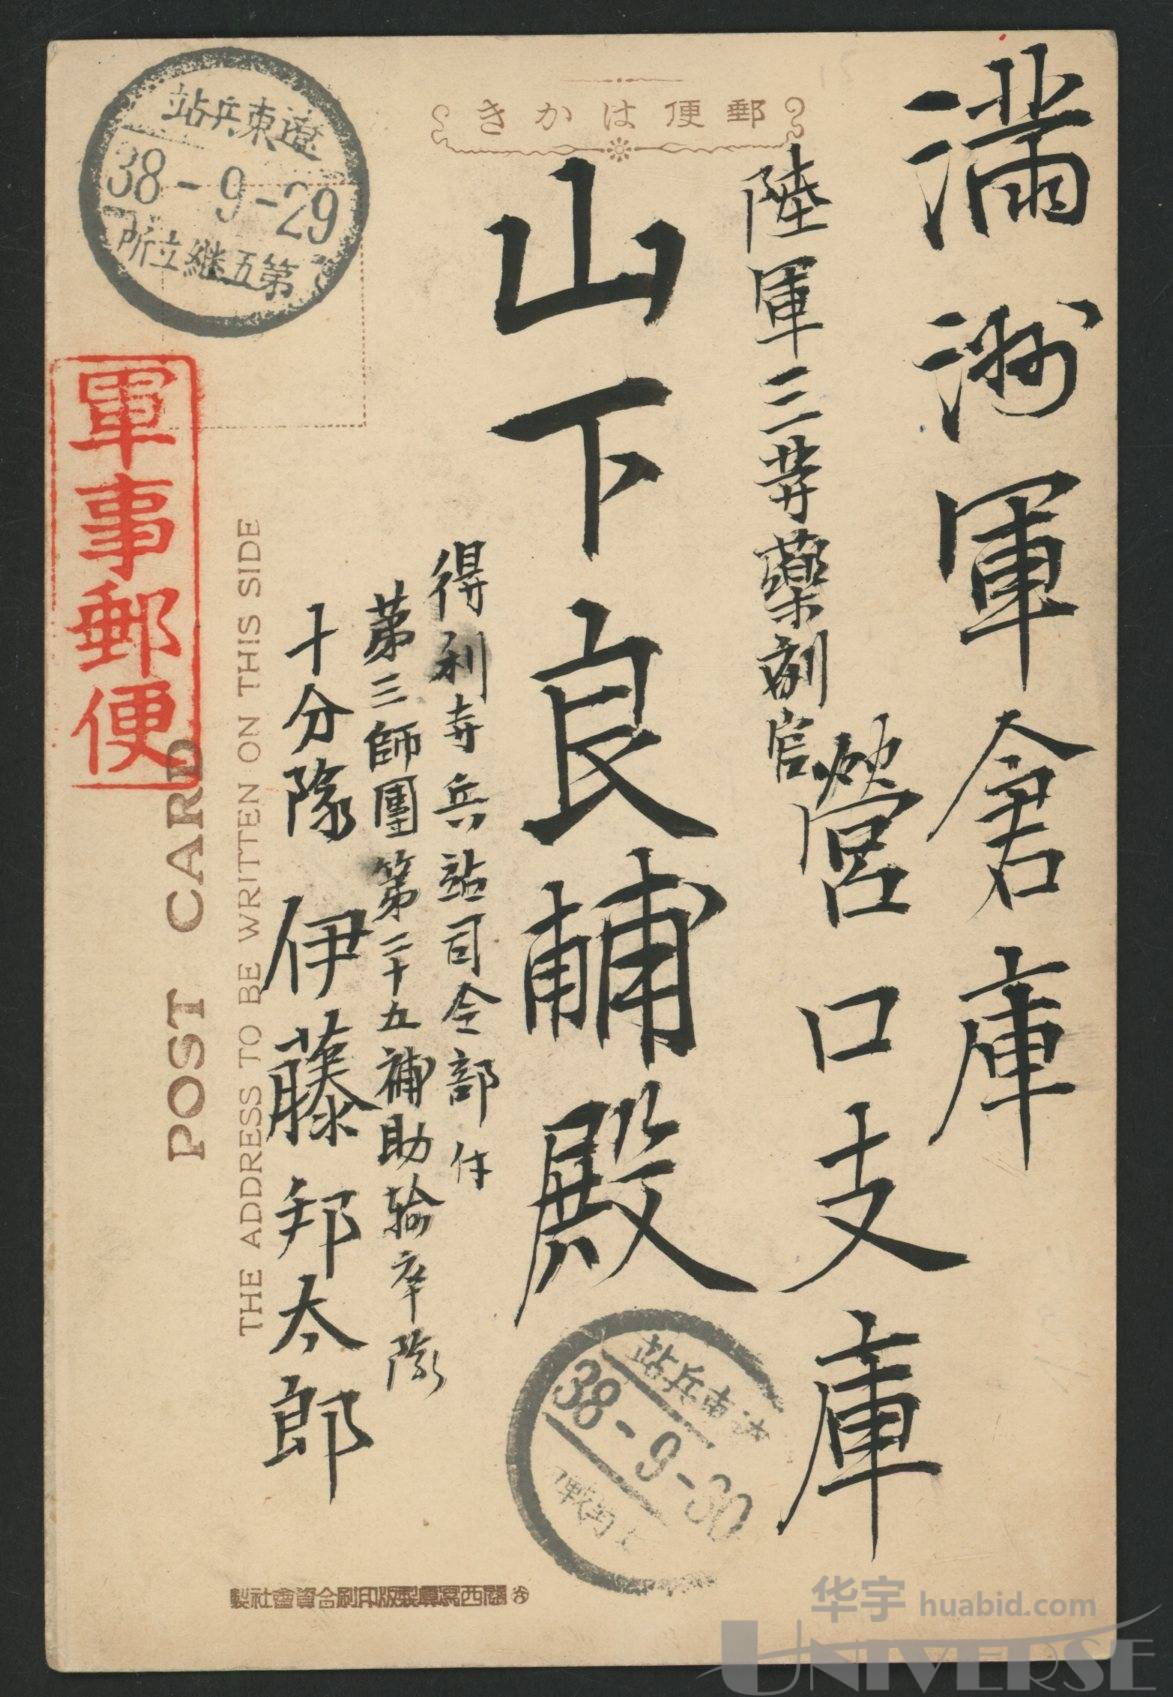 郵便はかき
満洲軍倉庫
營口支庫
陸軍三等藥劑官
山下良輔殿
得利寺兵站司令部付
第三師團第二十五補助輸卒隊
十分隊 伊藤邦太郎
遼東兵站
38-9-29
第五継立所
軍事郵便
POST CARD
THE ADDRESS TO BE WRITTEN ON THIS SIDE
東兵站
38-9-30
關西寫真製版印刷合資會社製
华宇 huabid.com
UNIVERSE